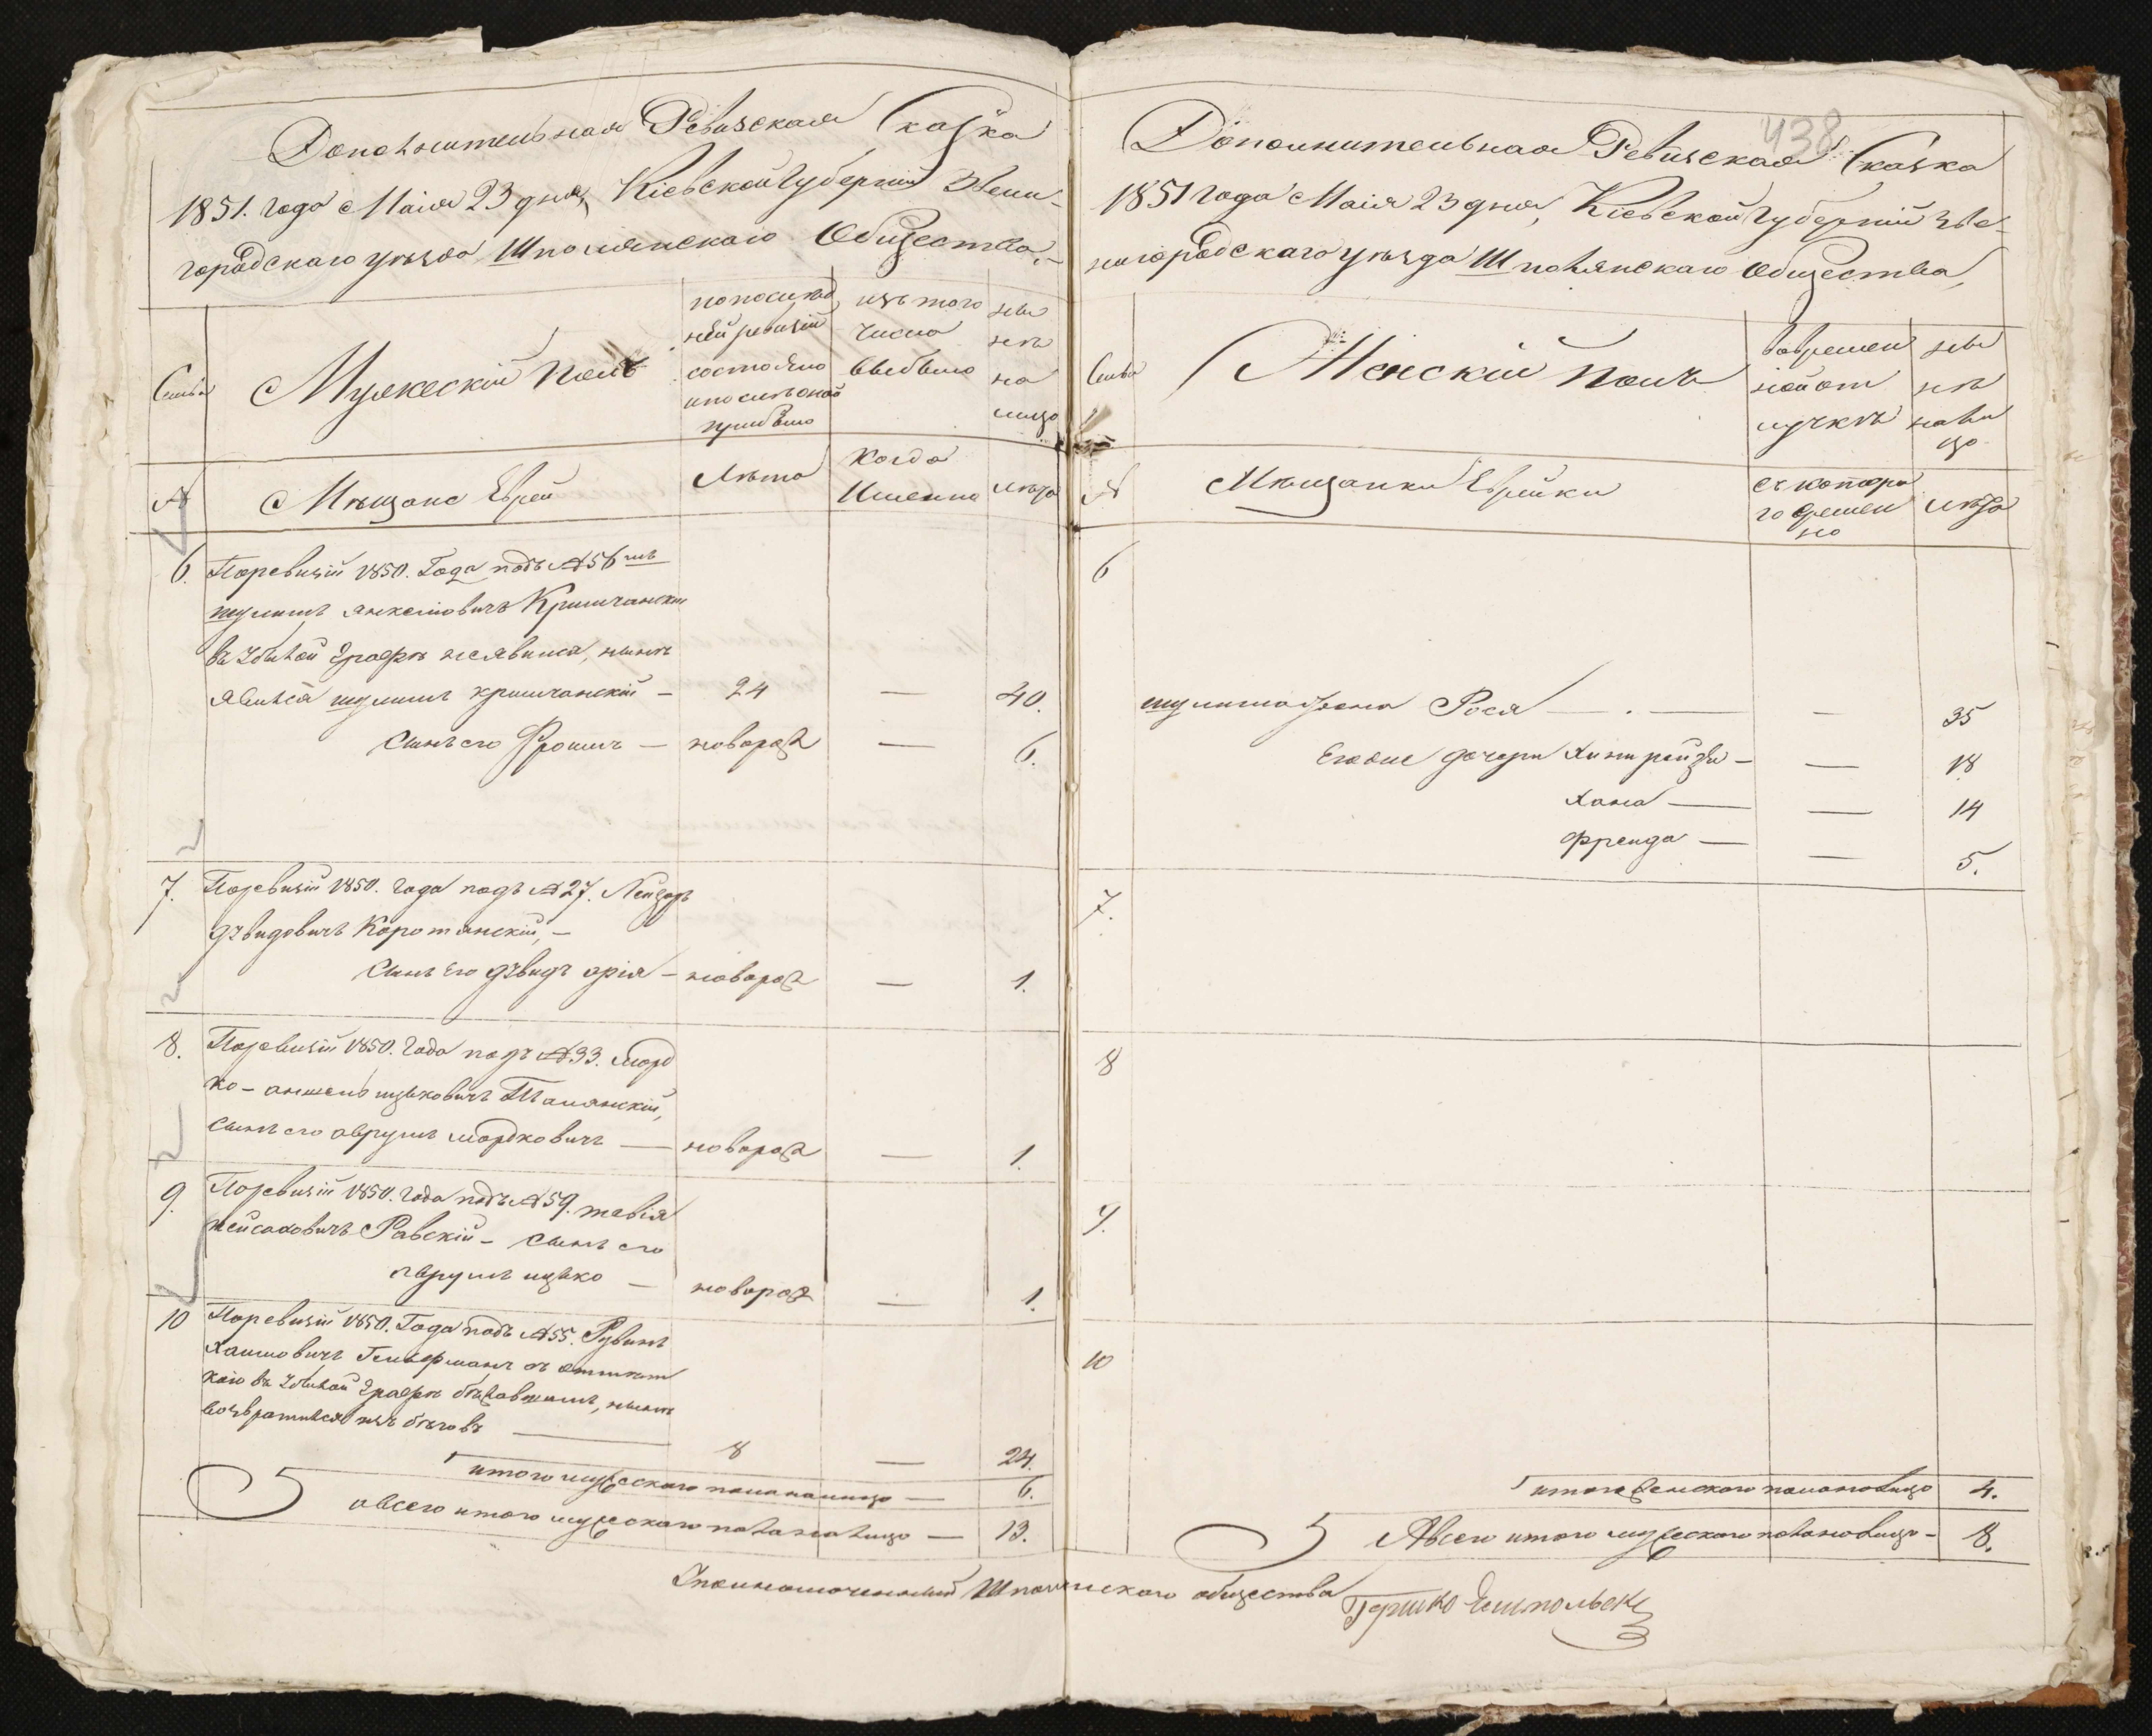 Дополнительная Ревизская Сказка
1851. года Маія 23 дня, Кіевской Губерніи Звени-
городскаго уѣзда Шполянскаго Общества,-
Семьи
Мужескій полъ
по послѣд
ней ревизіи
состояло
и послѣ оной
прибыло
изъ того
числа
выбыло
ны
нѣ
на
лицо
№
Мѣщане Евреи
Лѣта
Когда
Именно
Лѣта
6. По ревизіи 1850. Года подъ №56 мъ
шулимъ янкелiовичъ Кришчанскій
въ збылой графѣ неявился, нынѣ
явился шулимъ кришчанскій - 24 — 40.
сынъ его Фроимъ — новорож — 6.
7. По ревизіи 1850. года подъ №27. Лейзоръ
дъвидовичъ Коротянскій, -
сынъ Его дъвидъ арія - новорож — 1.
8. По ревизіи 1850. Года подъ №33. Морд
ко-аншель ицковичъ Талянскій,
сынъ его аврумъ мордковичъ — новорож — 1.
9. По ревизіи 1850. Года подъ №59. тевія
пейсаховичъ Равскій - сынъ его
аврумъ ицко — новорож — 1.
10 По ревизіи 1850. Года подъ №55. Рувинъ
Хаимовичъ Гельфманъ съ отмѣт
кою въ збылой графѣ бѣжавшимъ, нынѣ
возвратился изъ бѣговъ — 8 — 24.
итого мужескаго пола налицо — 6.
а всего итого мужескаго пола налицо — 13.
438
Дополнительная Ревизская Сказка
1851 года Маія 23 дня, Кіевской Губерніи Зве-
нигородскаго уѣзда Шполянскаго Общества,
Семьи
Женскій полъ
Во времен
ной от
лучкѣ
ны
нѣ
нали
цо
№
Мѣщанки Еврейки
съ котора
го времен
но
Лѣта
6
шулима жена Рося — . — — 35
Его оные дочери Хинирейзя — — 18
Хана — — 14
Фрейда — — 5.
7.
8
9.
10
итого женскаго пола налицо 4.
А всего итого мужескаго пола налицо - 8.
Уполномоченный Шполянскаго общества Гершко Ямпольскі